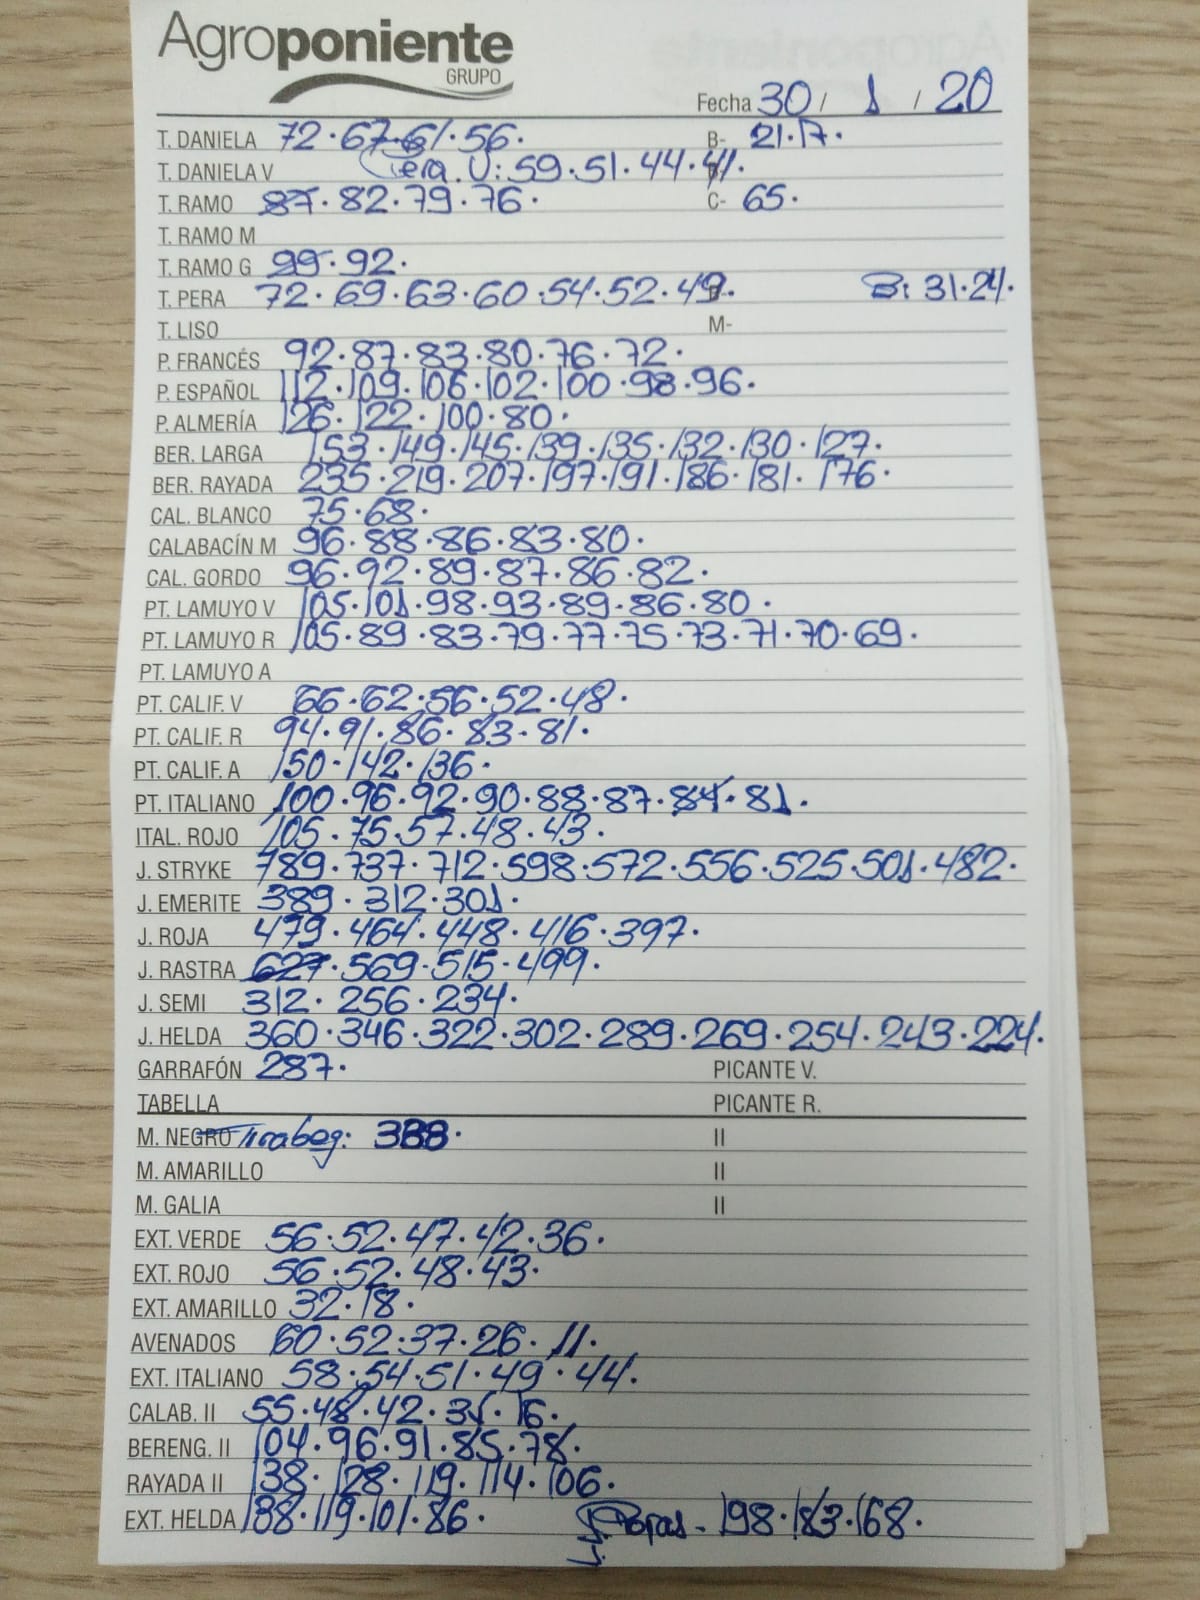 Agroponiente
GRUPO
Fecha 30 / 1 / 20
T. DANIELA 72·67·61·56· B- 21·17·
T. DANIELA V Pera. V: 59·51·44·41·
T. RAMO 87·82·79·76· C- 65·
T. RAMO M
T. RAMO G 99·92·
T. PERA 72·69·63·60·54·52·49· B: 31·24·
T. LISO M-
P. FRANCÉS 92·87·83·80·76·72·
P. ESPAÑOL 112·109·106·102·100·98·96·
P. ALMERÍA 126·122·100·80·
BER. LARGA 153·149·145·139·135·132·130·127·
BER. RAYADA 235·219·207·197·191·186·181·176·
CAL. BLANCO 75·68·
CALABACÍN M 96·88·86·83·80·
CAL. GORDO 96·92·89·87·86·82·
PT. LAMUYO V 105·101·98·93·89·86·80·
PT. LAMUYO R 105·89·83·79·77·75·73·71·70·69·
PT. LAMUYO A
PT. CALIF. V 66·62·56·52·48·
PT. CALIF. R 94·91·86·83·81·
PT. CALIF. A 150·142·136·
PT. ITALIANO 100·96·92·90·88·87·84·81·
ITAL. ROJO 105·75·57·48·43·
J. STRYKE 789·737·712·598·572·556·525·501·482·
J. EMERITE 389·312·301·
J. ROJA 479·464·448·416·397·
J. RASTRA 627·569·515·499·
J. SEMI 312·256·234·
J. HELDA 360·346·322·302·289·269·254·243·224·
GARRAFÓN 287· PICANTE V.
TABELLA PICANTE R.
M. NEGRO Tirabeq: 388· II
M. AMARILLO II
M. GALIA II
EXT. VERDE 56·52·47·42·36·
EXT. ROJO 56·52·48·43·
EXT. AMARILLO 32·18·
AVENADOS 60·52·37·26·11·
EXT. ITALIANO 58·54·51·49·44·
CALAB. II 55·48·42·31·16·
BERENG. II 104·96·91·85·78·
RAYADA II 138·128·119·114·106·
EXT. HELDA 138·119·101·86· - 198·183·168·